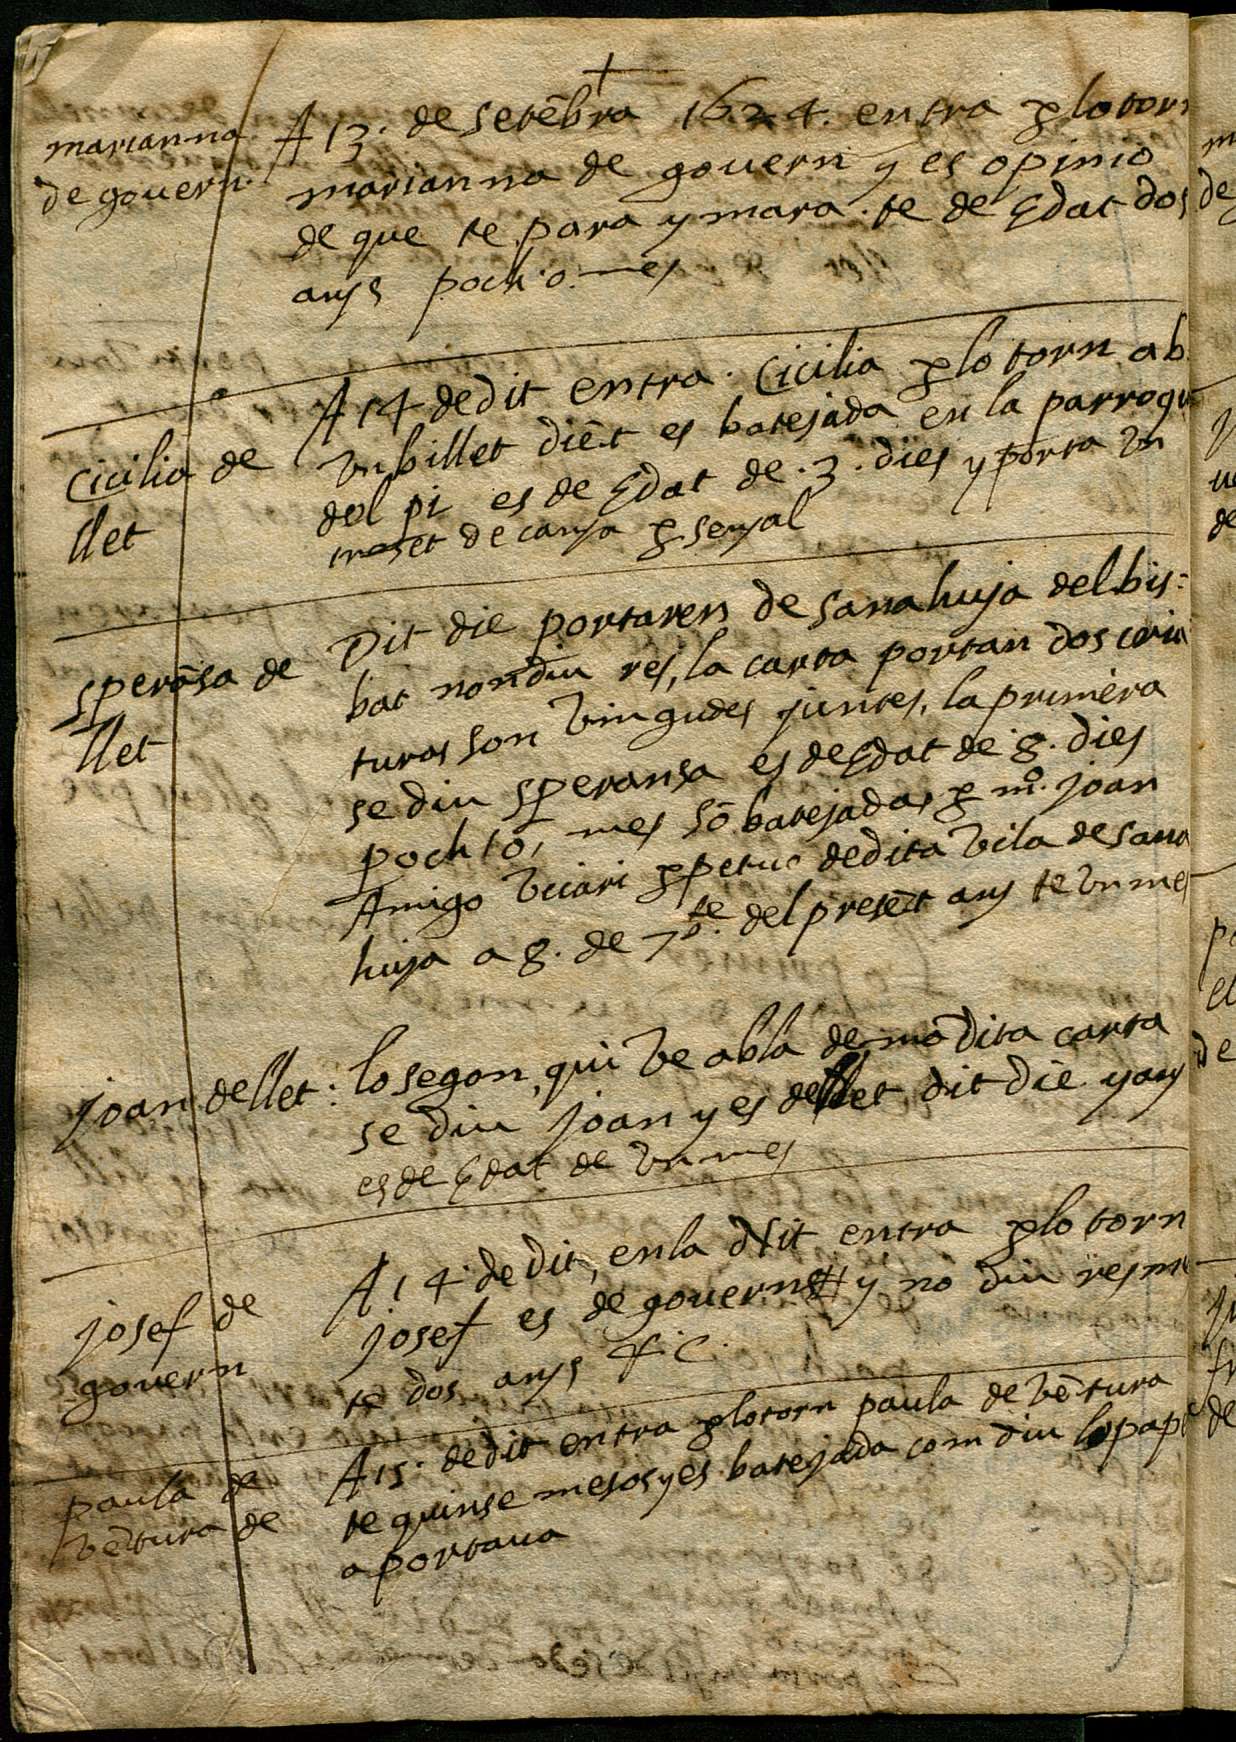 marianna
de govern.
A 13. de setēbra 1624. entra p lo torn
marianna de govern y es opinio
de que te para y mara. te de Edat dos
anys poch o mes
Cicilia de
llet
A 14 de dit entra. Cicilia p lo torn ab
un billet diēt es batejada en la parroqu
del pi es de Edat de .3. dies y porta un
troset de canya p senyal
sperāsa de
llet
Dit die portaren de sanahuja del bis=
bat non diu res, la carta portan dos criu
turas son vingudes juntes, la primera
se diu speransa es de Edat de 8. dies
poch o, mes sō batejadas p mº. joan
Amigo vicari ppetuo de dita vila de sana
huja a 8. de 7bre. del presēt any te un mes
joan de llet:
lo segon, qui ve ab la demō dita carta
se diu joan y es de llet dit die y any
es de Edat de un mes
josef de
govern
A 14 de dit, en la Nit entra p lo torn
josef es de govern y no diu res mes
te dos anys &.c.
paula de
vētura de
A 15. de dit entra p lo torn paula de vētura
te quinse mesos y es batejada com diu lo pape
aportava